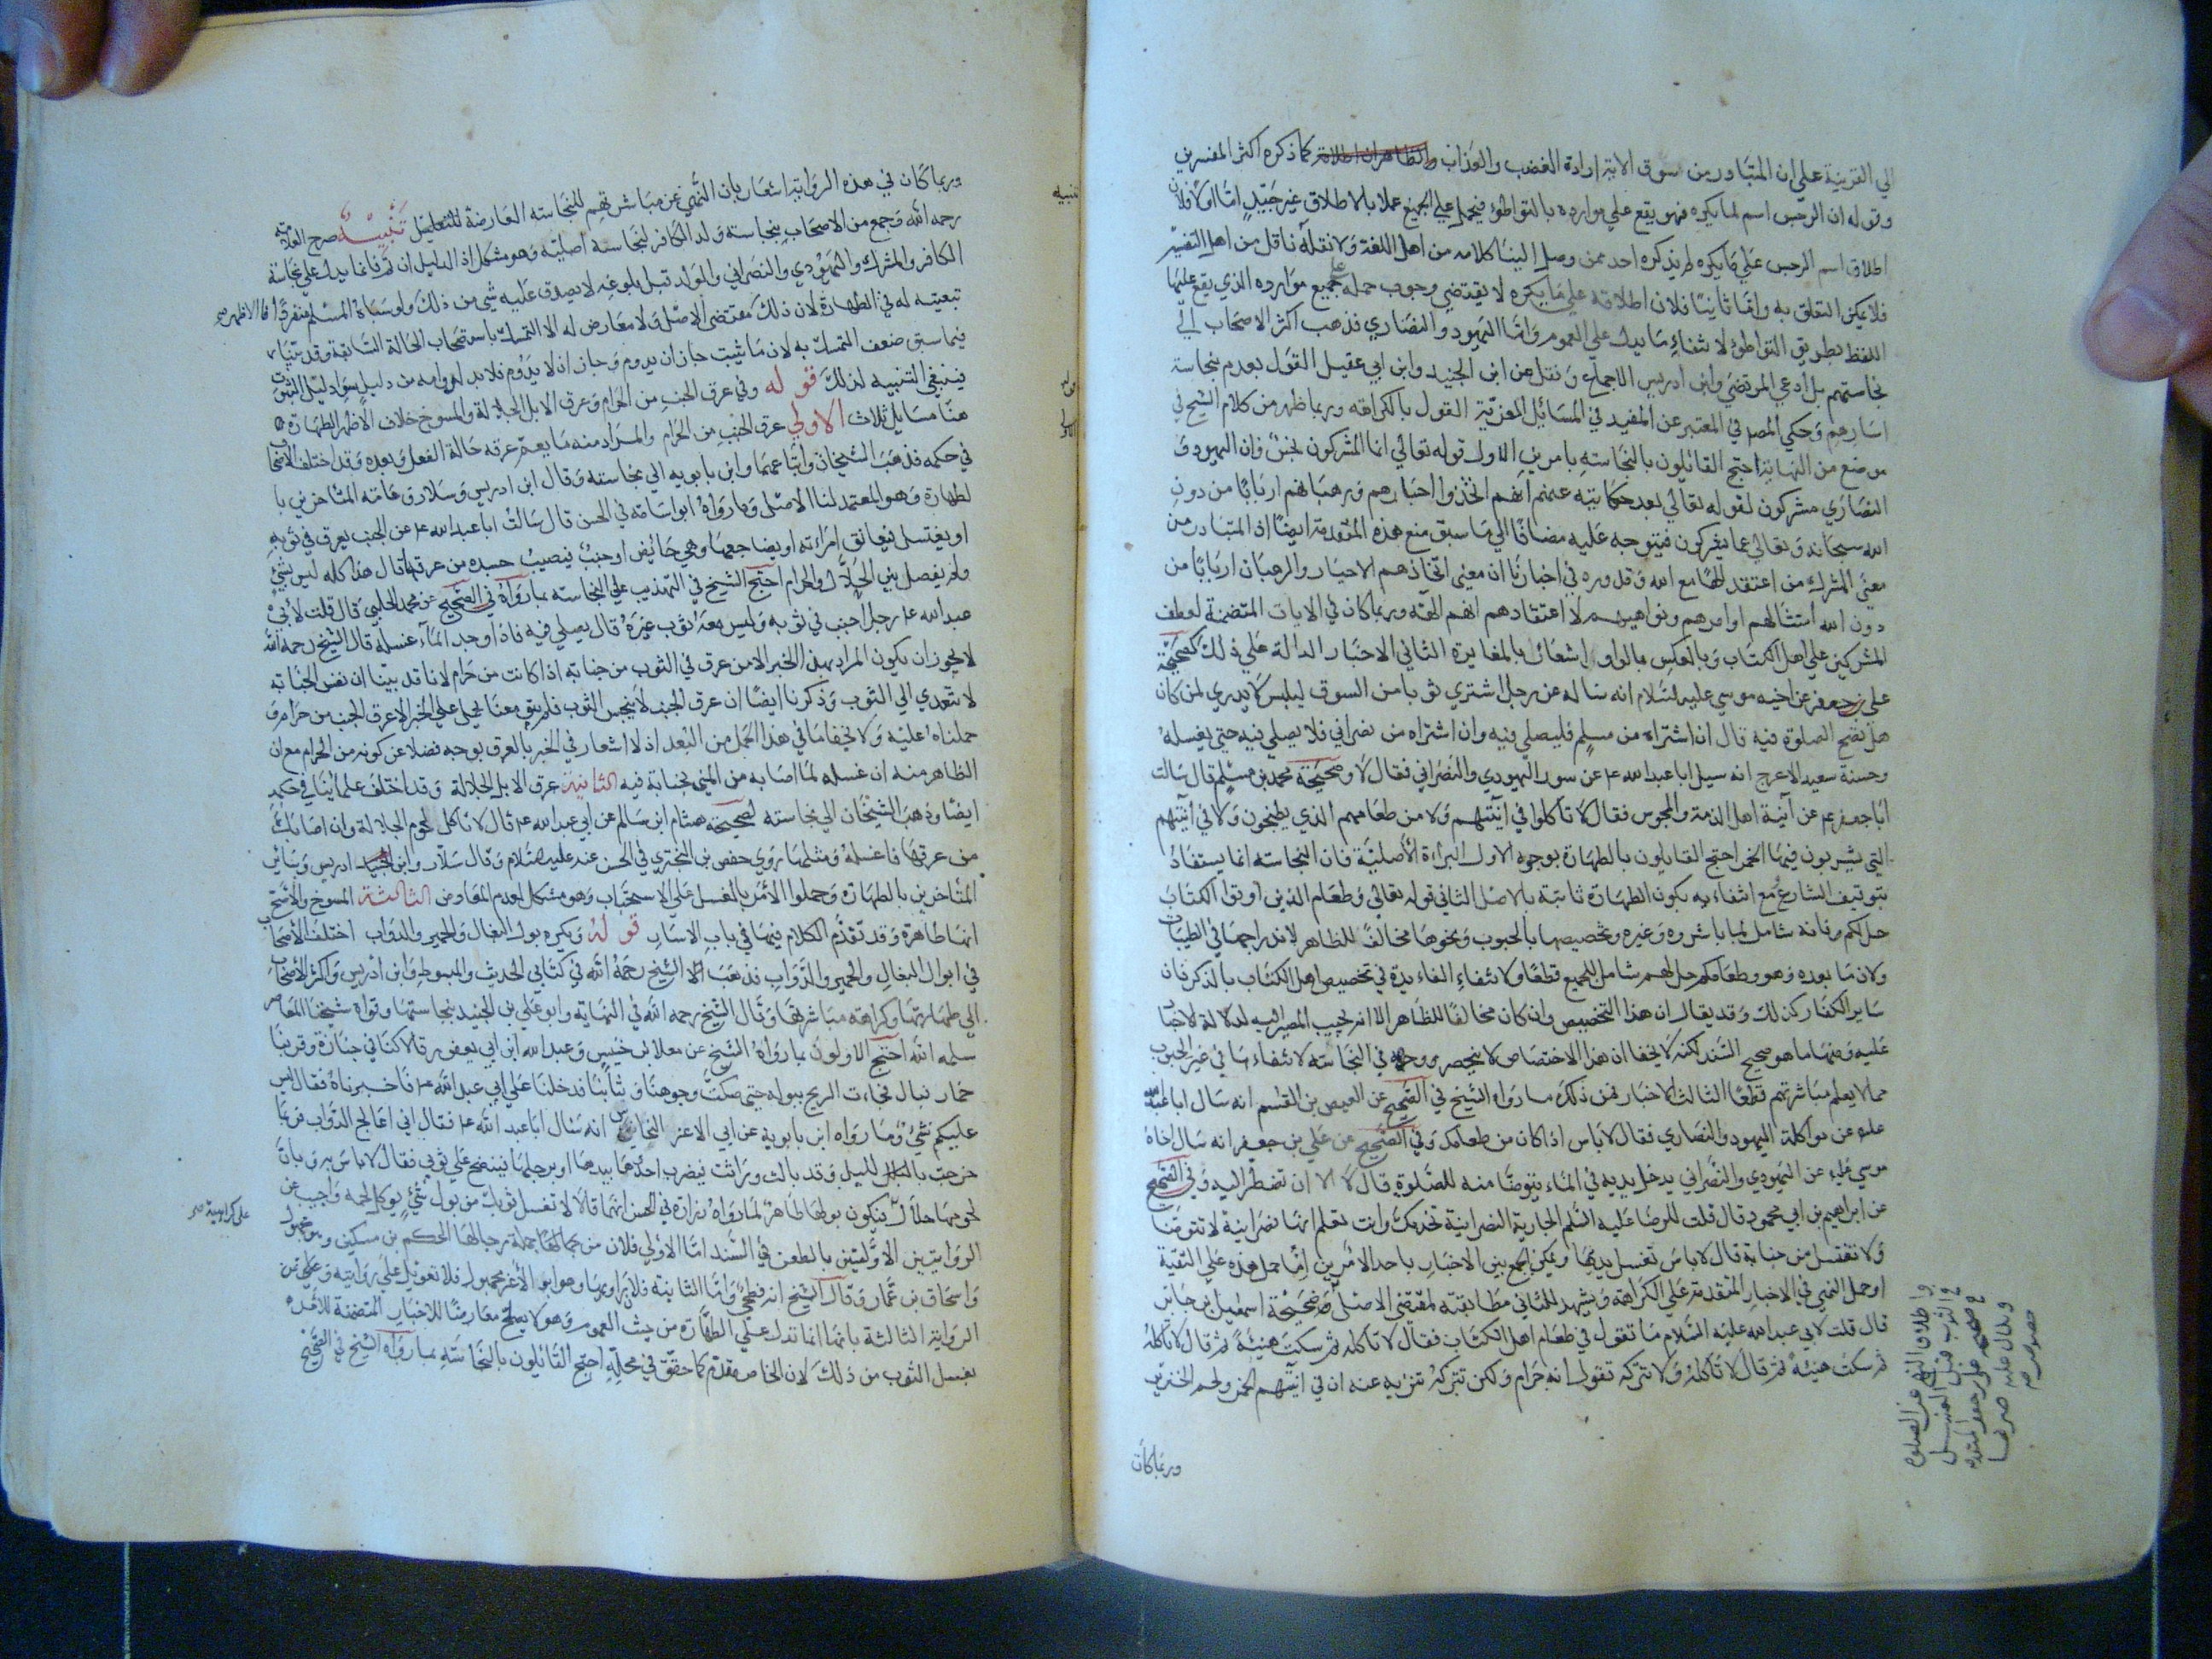 الي القرينة علي ان المتبادر من سوق الاية ارادة الغضب والعذاب والظاهر ان اطلاقه كما ذكره اكثر المفسرين
وقوله ان الرجس اسم لما يكره فهو يقع علي موارده بالتواطؤ فيحمل علي الجميع عملا بالاطلاق غير جيد اما اولا فلان
اطلاق اسم الرجس علي ما يكره لم يذكره احد ممن وصل الينا كلامه من اهل اللغة ولا نقله ناقل من اهل التفسير
فلا يمكن التعلق به واما ثانيا فلان اطلاقه علي ما يكره لا يقتضي وجوب حمله علي جميع موارده الذي يقع عليها
اللفظ بطريق التواطؤ لانتفاء ما يدل علي العموم واما اليهود والنصاري فذهب اكثر الاصحاب الي
نجاستهم بل ادعي المرتضي وابن ادريس الاجماع ونقل عن ابن الجنيد وابن ابي عقيل القول بعدم نجاسة
اسارهم وحكي المصر في المعتبر عن المفيد في المسائل الغرية القول بالكراهة وربما ظهر من كلام الشيخ في
موضع من النهاية احتج القائلون بالنجاسة بامرين الاول قوله تعالي انما المشركون نجس فان اليهود و
النصاري مشركون لقوله تعالي بعد حكايته عنهم انهم اتخذوا احبارهم ورهبانهم اربابا من دون
الله سبحانه وتعالي عما يشركون فيتوجه عليه مضافا الي ما سبق منع هذه المقدمة ايضا اذ المتبادر من
معني المشرك من اعتقد الها مع الله وقد ورد في اخبارنا ان معني اتخاذهم الاحبار والرهبان اربابا من
دون الله امتثالهم اوامرهم ونواهيهم لا اعتقادهم انهم الهة وربما كان في الايات المتضمنة لعطف
المشركين علي اهل الكتاب وبالعكس بالواو اشعار بالمغايرة الثاني الاخبار الدالة علي ذلك كصحيحة
علي بن جعفر عن اخيه موسي عليه السلام انه ساله عن رجل اشتري ثوبا من السوق للبس لا يدري لمن كان
هل تصح الصلوة فيه قال ان اشتراه من مسلم فليصلي فيه وان اشتراه من نصراني فلا يصلي فيه حتي يغسله
وحسنة سعيد الاعرج انه سيل ابا عبد الله ع عن سور اليهودي والنصراني فقال لا وصحيحة محمد بن مسلم قال سالت
ابا جعفر ع عن آنية اهل الذمة والمجوس فقال لا تاكلوا في آنيتهم ولا من طعامهم الذي يطبخون ولا في آنيتهم
التي يشربون فيها الخمر احتج القايلون بالطهارة بوجوه الاول البراءة الأصلية فان النجاسة انما يستفاد
بتوقيف الشارع ومع انتفاء به يكون الطهارة ثابتة بالاصل الثاني قوله تعالي وطعام الذين اوتوا الكتاب
حل لكم فانه شامل لما باشروه وغيره وتخصيصها بالحبوب ونحوها مخالف للظاهر لاندراجها في الطيبات
ولان ما بعده وهو وطعامكم حل لهم شامل للجميع قطعا ولانتفاء الفايدة في تخصيص اهل الكتاب بالذكر فان
ساير الكفار كذلك وقد يقال ان هذا التخصيص وان كان مخالفا للظاهر الا انه يجب المصير اليه لدلالة الاخبار
عليه ومنها ما هو صحيح السند لكنه لا يخفا ان هذا الاختصاص لا ينحصر وجهه في النجاسة لانتفاءها في غير الحبوب
مما لا يعلم مباشرتهم قطعا الثالث الاخبار فمن ذلك ما رواه الشيخ في الصحيح عن العيص بن القسم انه سال ابا عبد الله
عليه عن مواكلة اليهود والنصاري فقال لا باس اذا كان من طعامك وفي الصحيح عن علي بن جعفر انه سال اخاه
موسي ع عن اليهودي والنصراني يدخل يديه في الماء يتوضا منه للصلوة قال لا الا ان تضطر اليه وفي الصحيح
عن ابراهيم بن ابي محمود قال قلت للرضا عليه السلم الجارية النصرانية تخدمك وانت تعلم انها نصرانية لا تتوضا
ولا تغتسل من جنابة قال لا باس تغسل يديها ويمكن الجمع بين الاخبار باحد الامرين اما حمل هذه علي التقية
او حمل النهي في الاخبار المتقدمة علي الكراهة ويشهد للثاني مطابقته لمقتضي الاصل وصحيحة اسمعيل بن جابر
قال قلت لابي عبد الله عليه السلام ما تقول في طعام اهل الكتاب فقال لا تاكله ثم سكت هنيئة ثم قال لا تاكله
ثم سكت هنيئة ثم قال لا تاكله ولا تتركه تقول انه حرام ولكن تتركه تنزيه عنه ان في آنيتهم الخمر ولحم الخنزير
وربما كان
وربما كان في هذه الرواية اشعار بان النهي عن مباشرتهم للنجاسة العارضة تنبيه صرح العلامة
رحمه الله وجمع من الاصحاب بنجاسة ولد الكافر لنجاسة اصليه وهو مشكل اذ الدليل ان تم فانما يدل علي نجاسة
الكافر والمشرك واليهودي والنصراني والولد قبل بلوغه لا يصدق عليه شي من ذلك ولو سباه المسلم منفردا فالاظهر
تبعيته له في الطهارة لان ذلك مقتضي الاصل ولا معارض له الا التمسك باستصحاب الحالة السابقة وقد بينا
فيما سبق ضعف التمسك به لان ما ثبت جاز ان يدوم وجاز ان لا يدوم فلابد لدوامه من دليل سوا دليل الثبوت
فينبغي التنبيه لذلك قوله وفي عرق الجنب من الحرام وعرق الابل الجلالة والمسوخ خلاف الاظهر الطهارة
هنا مسايل ثلاث الاولي عرق الجنب من الحرام والمراد منه ما يعم عرقه حالة الفعل وبعده وقد اختلف الاصحاب
في حكمه فذهب الشيخان واتباعهما وابن بابويه الي نجاسته وقال ابن ادريس وسلار وعامة المتاخرين با
لطهارة وهو المعتمد لنا الاصل وما رواه ابو اسامة في الحسن قال سالت ابا عبد الله ع عن الجنب يعرق في ثوبه
او يغتسل فيعانق امراته او يضاجعها وهي حائض او جنب فيصيب جسده من عرقها قال هذا كله ليس بشئ
ولم يفصل بين الحلال والحرام احتج الشيخ في التهذيب علي النجاسة بما رواه في الصحيح عن محمد الحلبي قال قلت لابي
عبد الله ع رجل اجنب في ثوبه وليس معه ثوب غيره قال يصلي فيه فاذا وجد الماء غسله قال الشيخ رحمه الله
لا يجوز ان يكون المراد بهذا الخبر الا من عرق في الثوب من جنابة اذا كانت من حرام لانا قد بينا ان نفس الجنابة
لا تتعدي الي الثوب وذكرنا ايضا ان عرق الجنب لا ينجس الثوب فلم يبق معنا يحمل عليه الخبر الا عرق الجنب من حرام و
حملناه عليه ولا يخفا ما في هذا الحمل من البعد اذ لا اشعار في الخبر بالعرق بوجه فضلا عن كونه من الحرام مع ان
الظاهر منه ان غسله لما اصابه من المني لجنابة فيه الثانية عرق الابل الجلالة وقد اختلف علمائنا في حكمه
ايضا وذهب الشيخان الي نجاسته لصحيحة هشام ابن سالم عن ابي عبد الله ع قال لا تاكل لحوم الجلالة وان اصابك
من عرقها فاغسله ومثلها روي حفص بن البختري في الحسن عنه عليه السلام وقال سلار وابن ادريس وسائر
المتاخرين بالطهارة وحملوا الامر بالغسل علي الاستحباب وهو مشكل لعدم المعارض الثالثة المسوخ والاصح
انها طاهرة وقد تقدم الكلام فيها في باب الاسار قوله ويكره بول البغال والحمير والدواب اختلف الأصحاب
في ابوال البغال والحمير والدواب فذهب الشيخ رحمه الله في كتابي الحديث والمبسوط وابن ادريس واكثر الأصحاب
الي طهارتها وكراهة مباشرتها وقال الشيخ رحمه الله في النهاية وابو علي بن الجنيد بنجاستها وقواه شيخنا المعاصر
سلمه الله احتج الاولون بما رواه الشيخ عن معلا بن خنيس وعبد الله ابن ابي يعفور قالا كنا في جنازة وقربنا
حمار فبال فجاءت الريح ببوله حتي صكت وجوهنا وثيابنا فدخلنا علي ابي عبد الله ع فاخبرناه فقال ليس
عليكم شئ وما رواه ابن بابويه عن ابي الاغر النحاس انه سئال ابا عبد الله ع فقال اني اعالج الدواب فربما
خرجت بالليل وقد بالت وراثت فيضرب احدها بيدها او برجلها فينضح علي ثوبي فقال لا باس به وبان
لحومها حلال فيكون بولها طاهر لما رواه زرارة في الحسن انهما قالا لا تغسل ثوبك من بول شئ يوكل لحمه واجيب عن
الروايتين الاولتين بالطعن في السند اما الاولي فلان من جملة رجالها الحكم بن مسكين وهو مجهول
واسحاق بن عمار وقال الشيخ انه فطحي واما الثانية فلان راويها وهو ابو الأغر مجهول فلا تعويل علي روايته وعن
الرواية الثالثة بانها انما تدل علي الطهارة من حيث العموم وهو لا يصلح معارضا للاخبار المتضمنة للامر
بغسل الثوب من ذلك لان الخاص مقدم كما حقق في محله احتج القائلون بالنجاسة بما رواه الشيخ في الصحيح
تنبيه